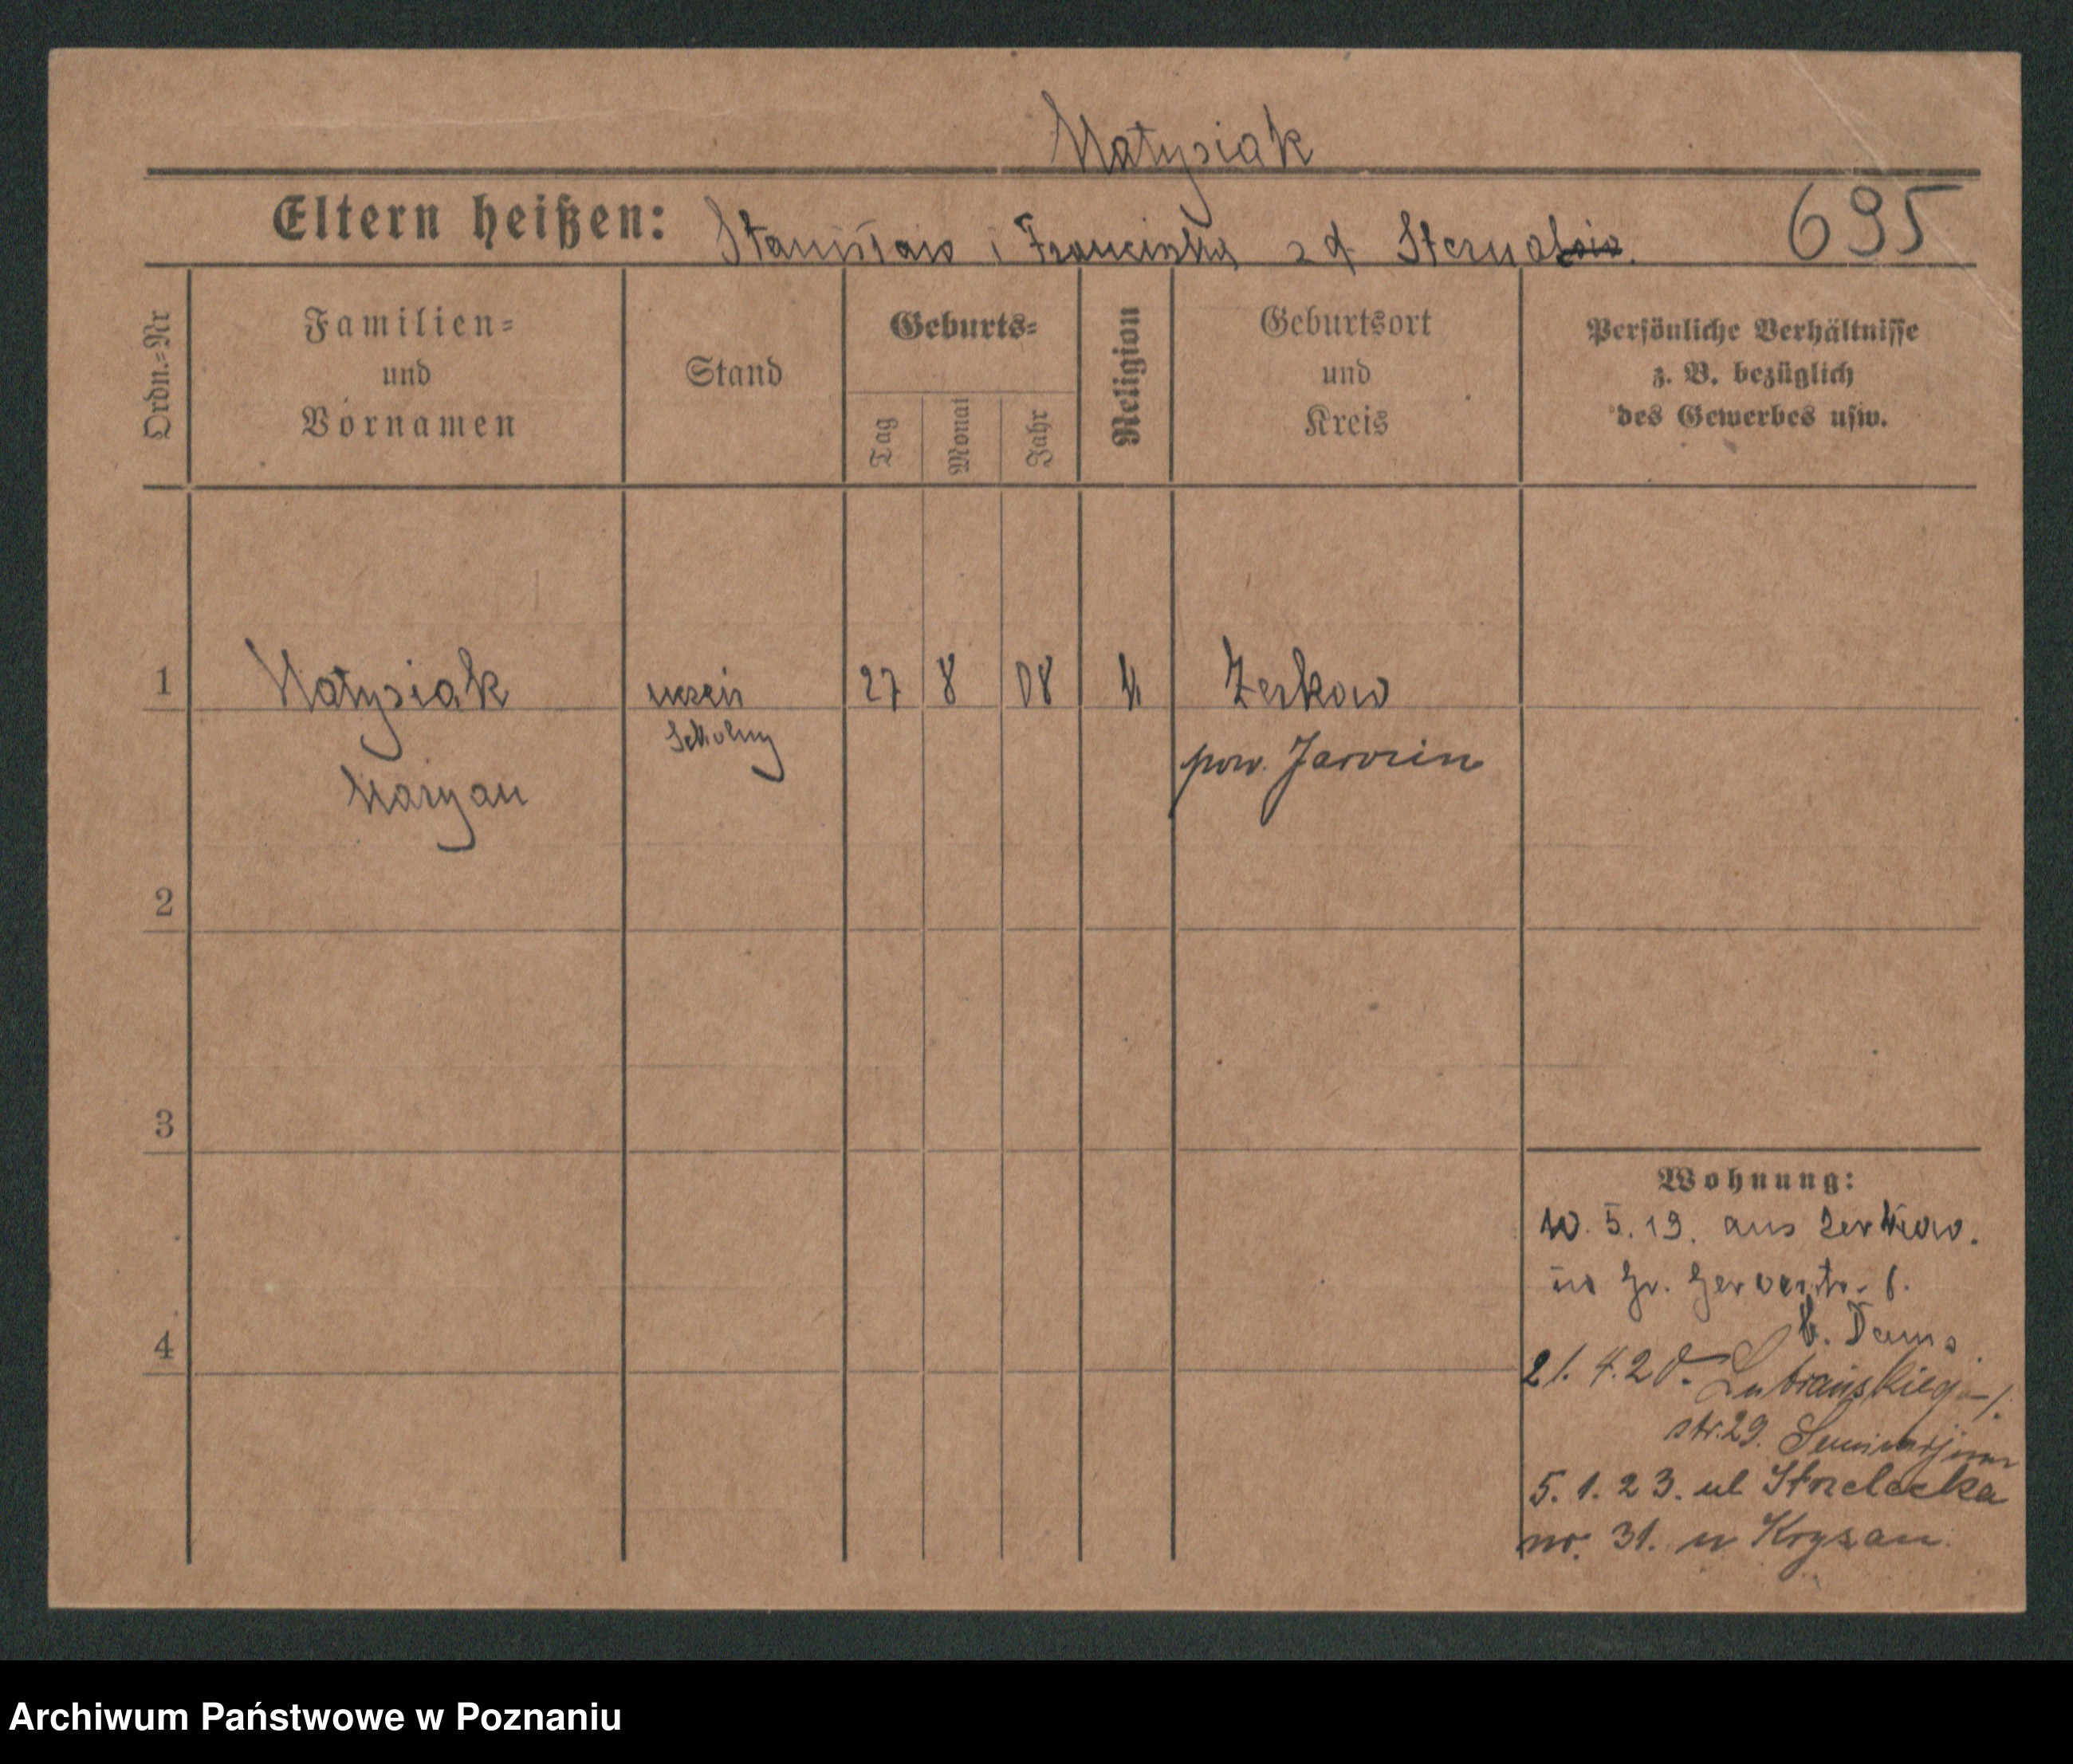 Matysiak
Eltern heißen: Stanisław i Franciszka zd Sternal
695
Ordn.-Nr
Familien-
und
Vornamen
Stand
Geburts-
Tag
Monat
Jahr
Religion
Geburtsort
und
Kreis
Persönliche Verhältnisse
z. B. bezüglich
des Gewerbes usw.
1 Matysiak uczeń 27 8 08 k Zerkow
szkolny
Maryan
pow. Jarocin
2
3
4
Wohnung:
10. 5. 19. aus Zerkow.
in Gr. Gerberstr. 6.
b. Dams
21. 4. 20. Lubrańskiego 1.
str. 29.
5. 1. 23. ul Strzelecka
nr. 31. u Kryszan
Archiwum Państwowe w Poznaniu